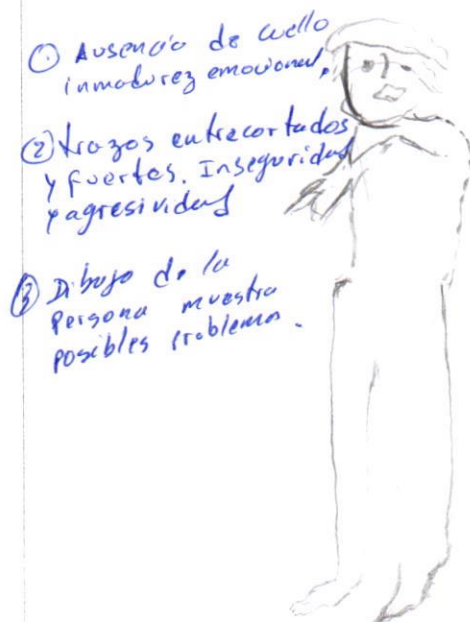 ① Ausencia de cuello
inmadurez emocional,
② trazos entrecortados
y fuertes. Inseguridad
y agresividad
③ Dibujo de la
persona muestra
posibles problemas.